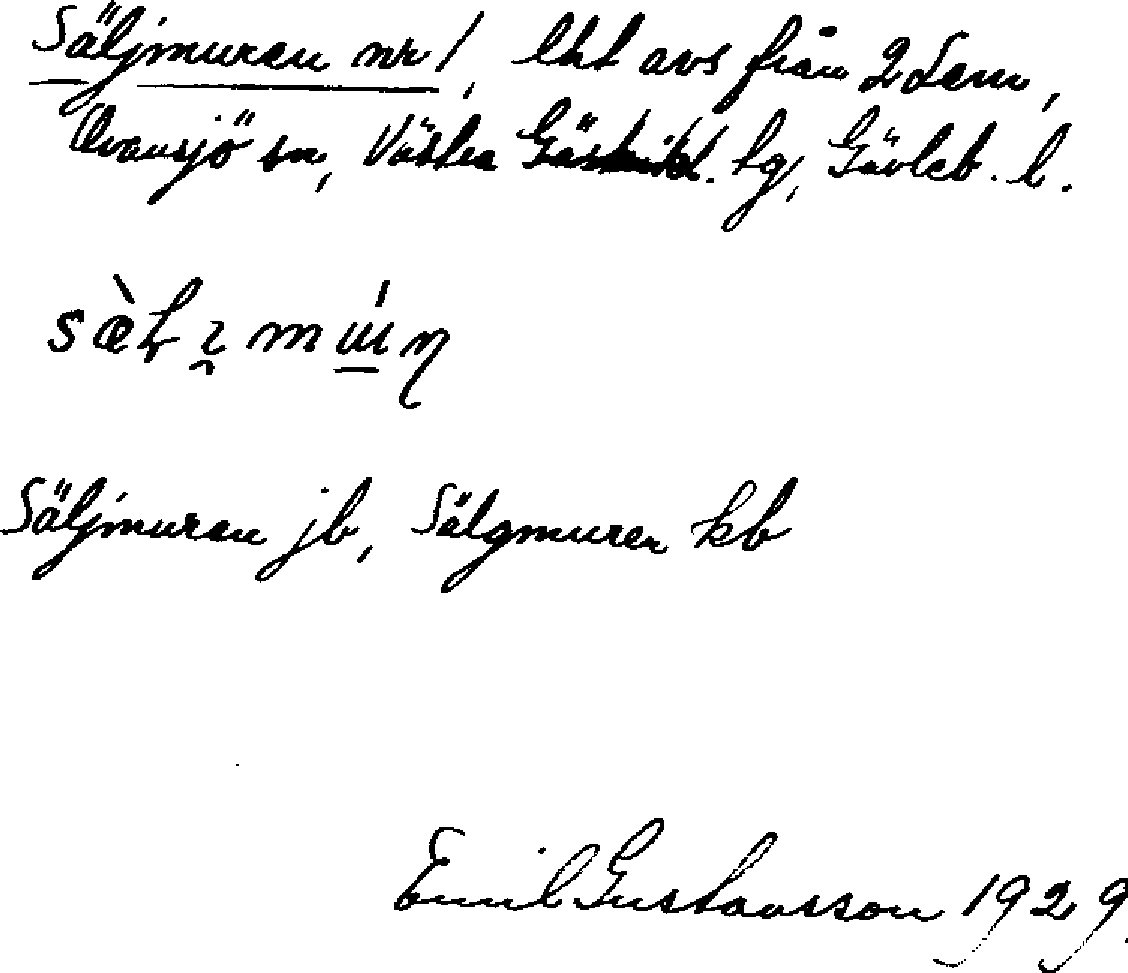 Säljmuren nr 1, lht avs från 2 Sem,
Ovansjö sn, Västra Gästrikl. tg, Gävleb. l.
Säljmuren jb, Sälgmuren kb
Emil Gustavsson 1929.